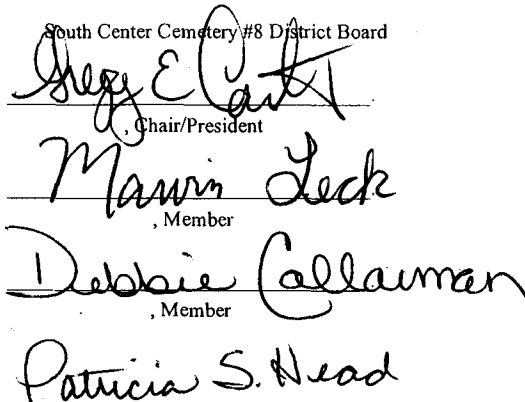 South Center Cemetery #8 District Board
Gregg E Cart
, Chair/President
Marvin Leck
, Member
Debbie Callarman
, Member
Patricia S. Head